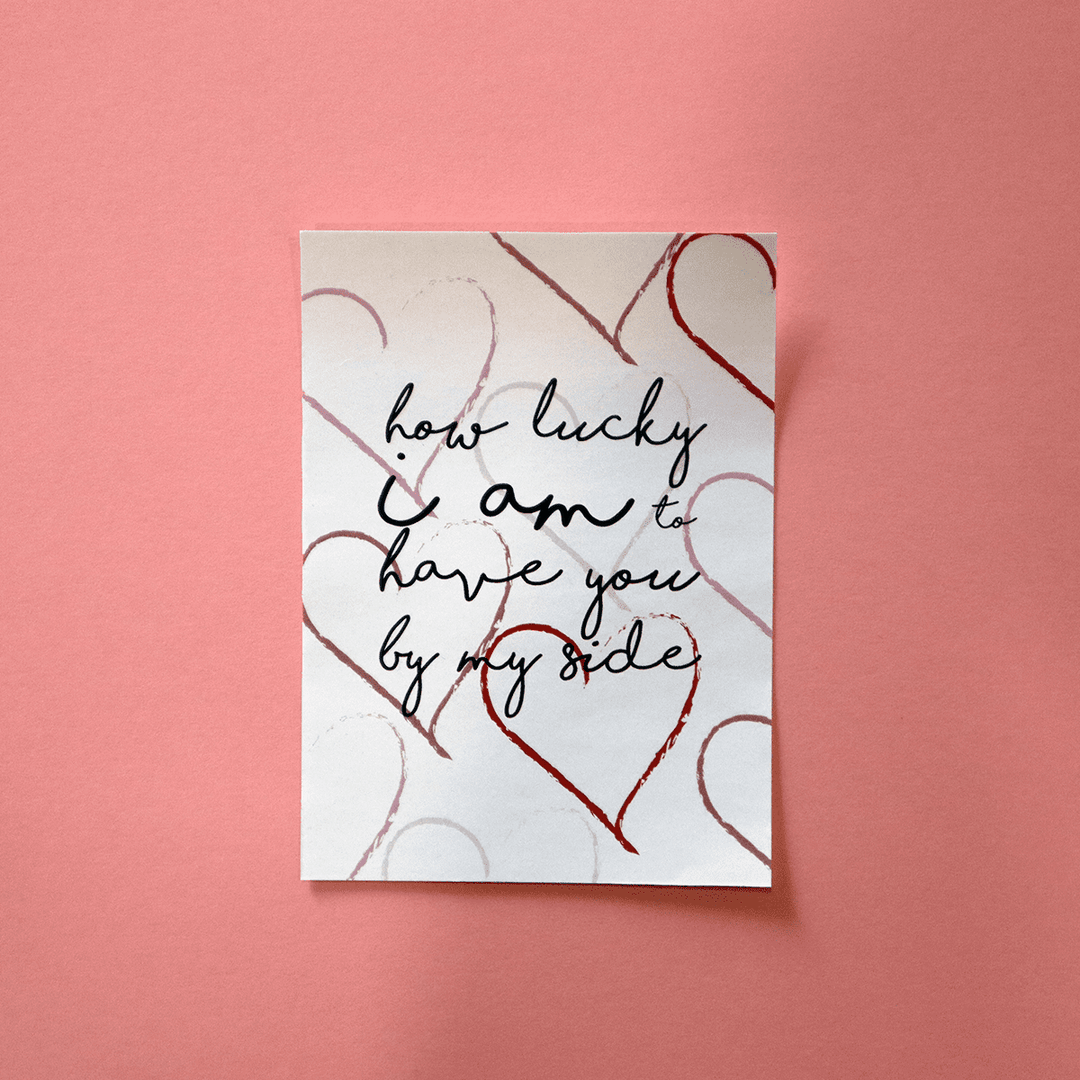 how lucky
i am to
have you
by my side